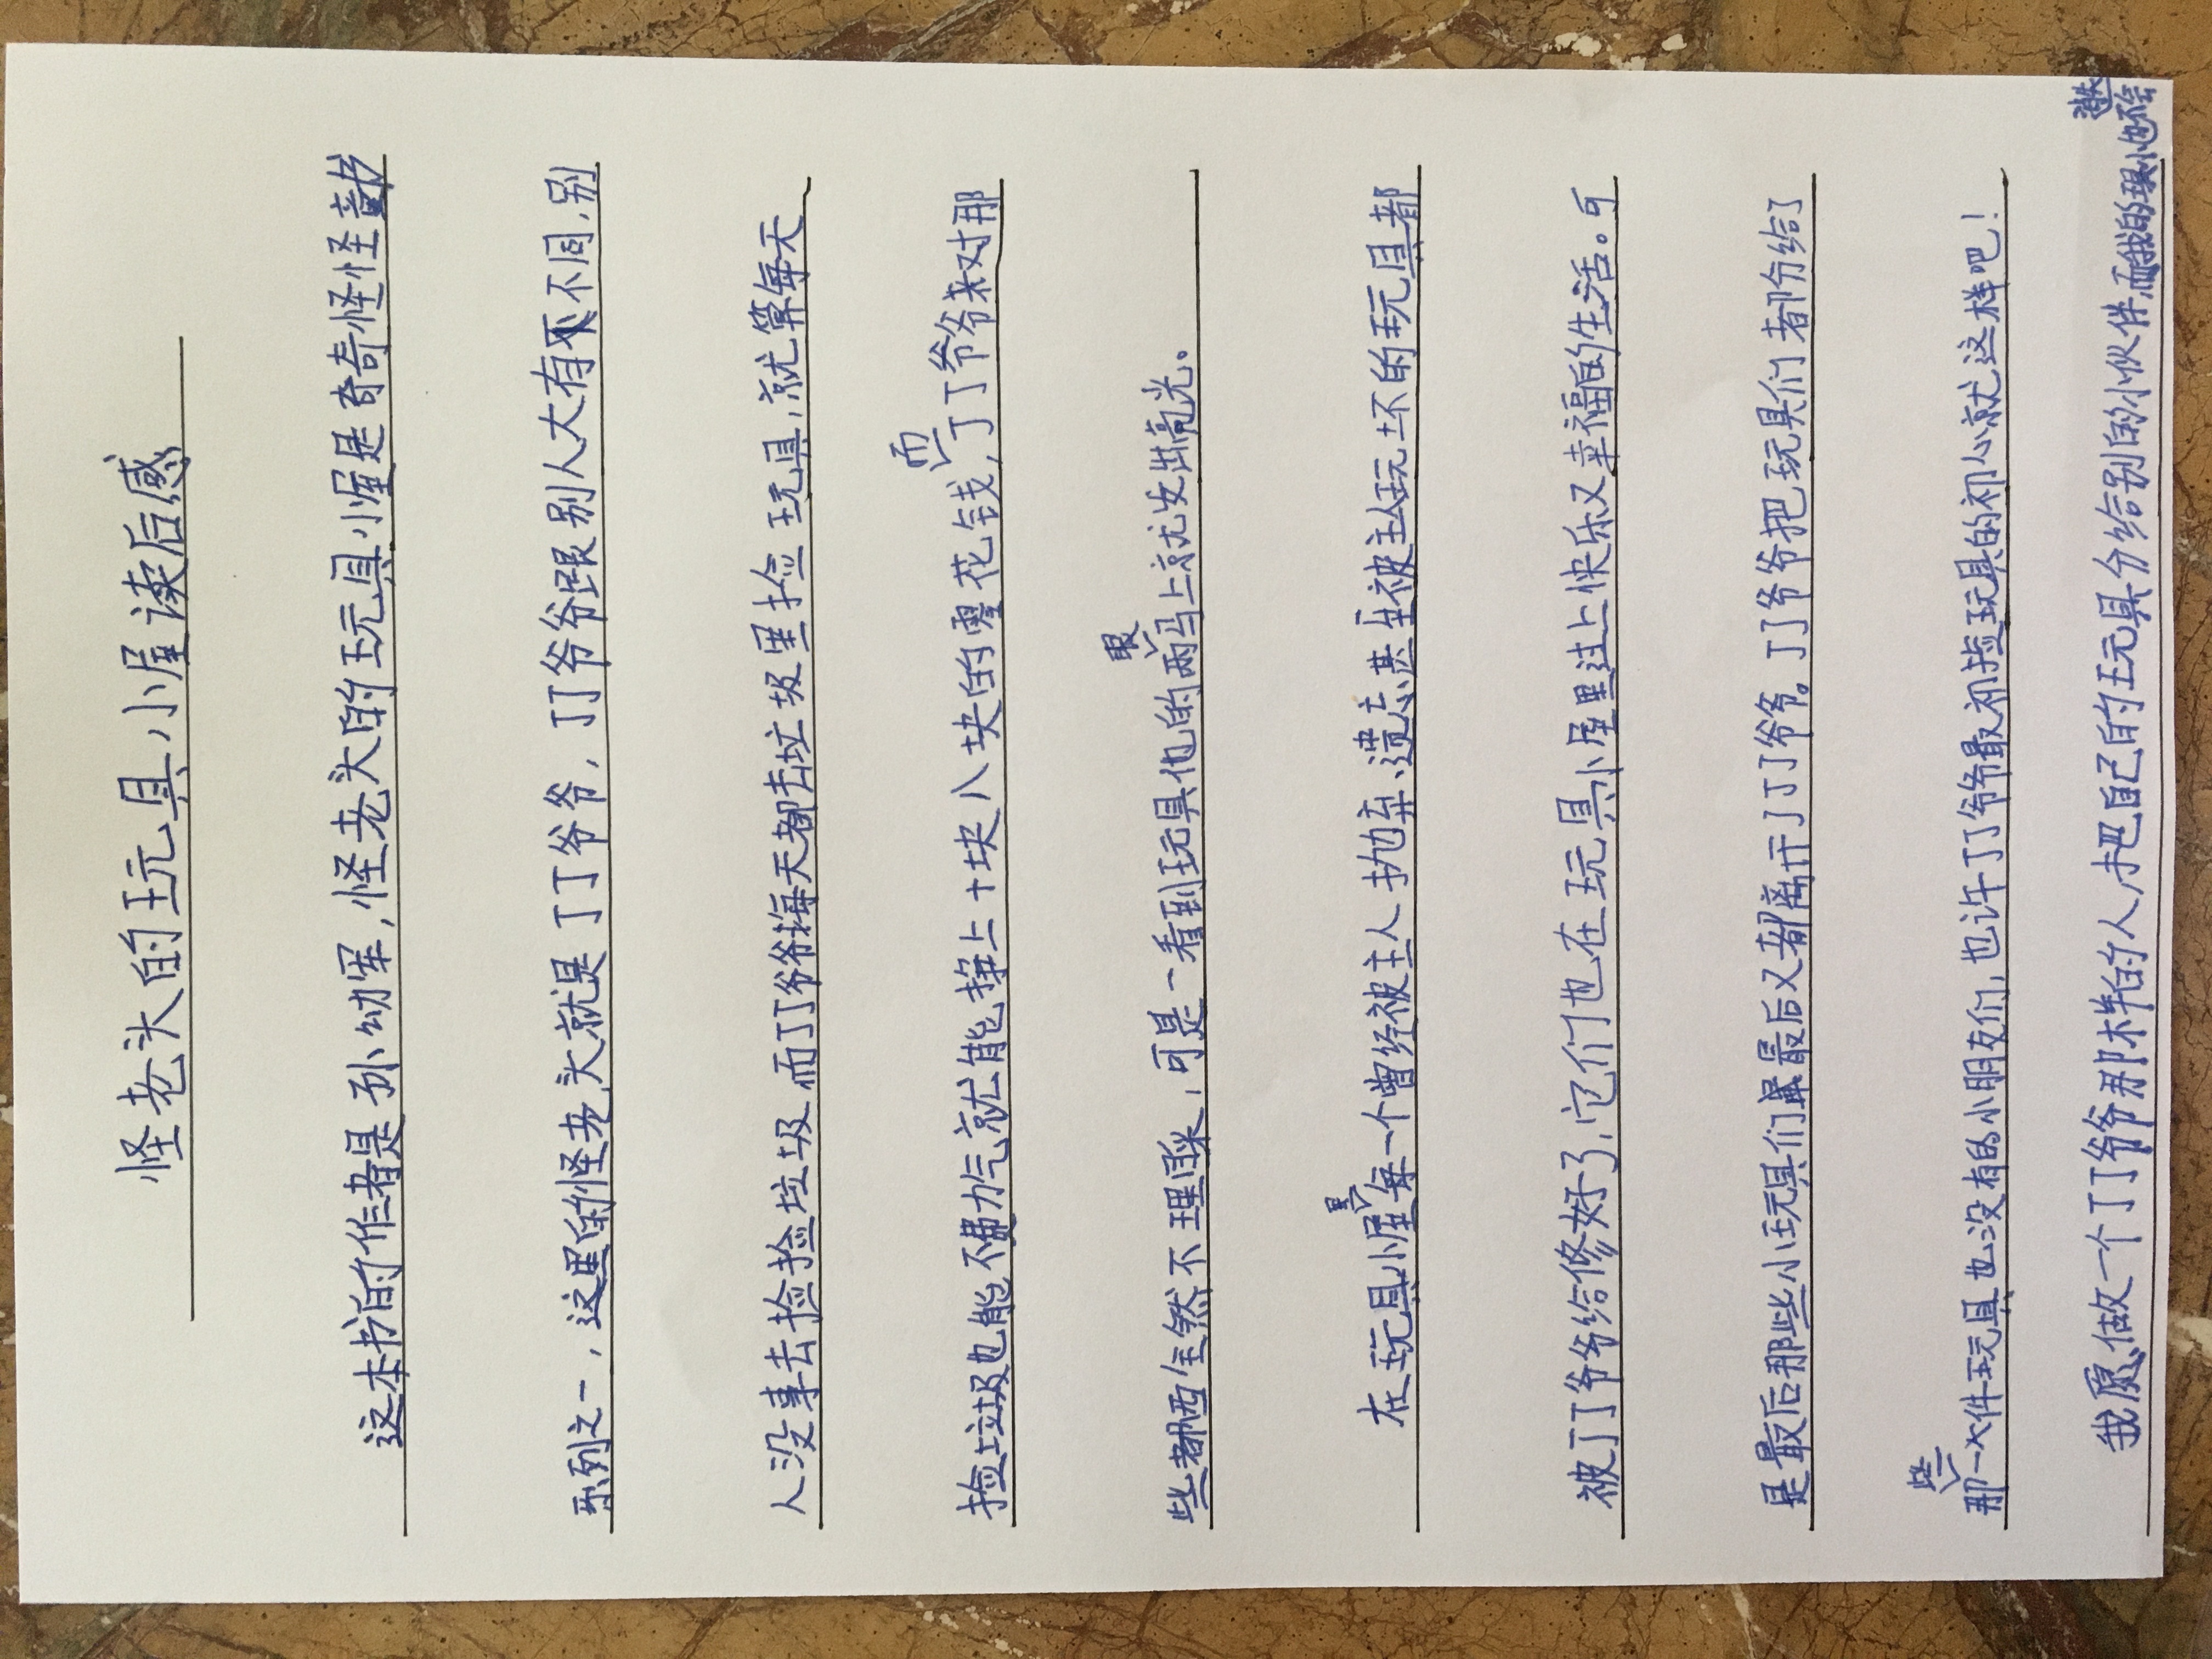 怪老头的玩具小屋读后感
这本书的作者是孙幼军，怪老头的玩具小屋是奇奇怪怪故
系列之一，这里的怪老头就是丁丁爷爷，丁丁爷爷跟别人大有不同，别
人没事去捡捡垃圾，而丁丁爷爷每天都去垃圾里捡玩具，就算每天
捡垃圾也能不费力气就能挣上十块八块的零花钱，而丁丁爷爷对那
些都西全然不理睬，可是一看到玩具他的两眼马上就发出亮光。
在玩具小屋里每一个曾经被主人抛弃、遗忘、甚至被主人玩坏的玩具都
被丁丁爷爷给修好了，它们也在玩具小屋里过上快乐又幸福的生活。可
是最后那些小玩具们最最后又都离开了丁丁爷爷。丁丁爷爷把玩具们都份给了
那些一件玩具也没有的小朋友们，也许丁丁爷爷最初捡玩具的初心就这样吧！
我愿做一个丁丁爷爷那样的人，把自己的玩具分给别的小伙伴，而我的玩具也不会